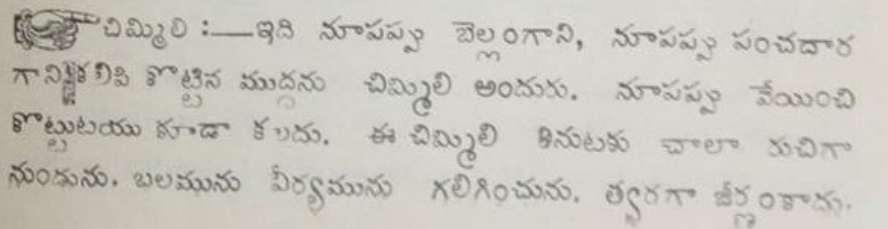 చిమ్మిలి :— ఇది నూపప్పు బెల్లంగాని, నూపప్పు పంచదార
గాని కలిపి కొట్టిన ముద్దను చిమ్మిలి అందురు. నూపప్పు వేయించి
కొట్టుటయు కూడా కలదు. ఈ చిమ్మిలి తినుటకు చాలా రుచిగా
నుండును. బలమును వీర్యమును గలిగించును. త్వరగా జీర్ణంకాదు.